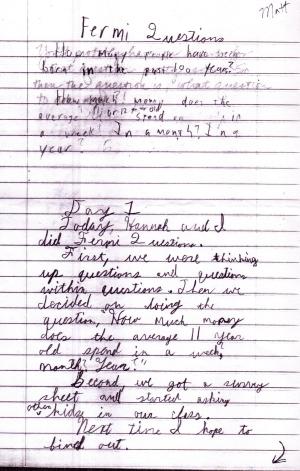 Matt
Fermi Questions
people have
born in the past 100 years?
question is what question
to how much money does the
average 11 or 12 year old spend in
a week? In a month? In a
year?
Day 1
Today, Hannah and I
did Fermi Questions.
First, we were thinking
up questions and questions
within questions. Then we
decided on doing the
question, "How much money
dots the average 11 year
old spend in a week,
month? Year?"
Second, we got a survey
sheet and started asking
other kids in our class.
Next time I hope to
find out.